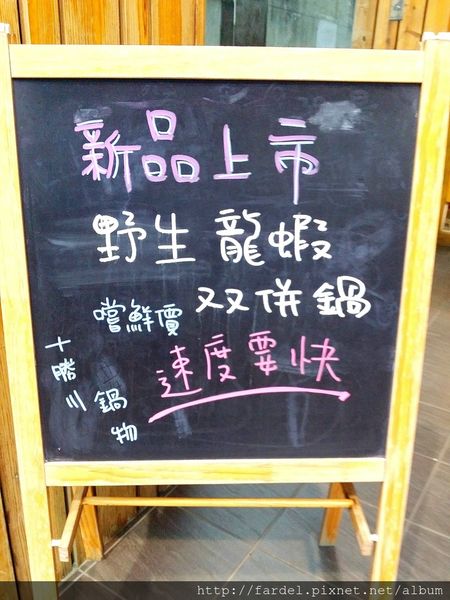 新品上市
野生龍蝦
双双併鍋
嚐鮮價
速度要快
十勝川
鍋物
http://fardel.pixnet.net/album